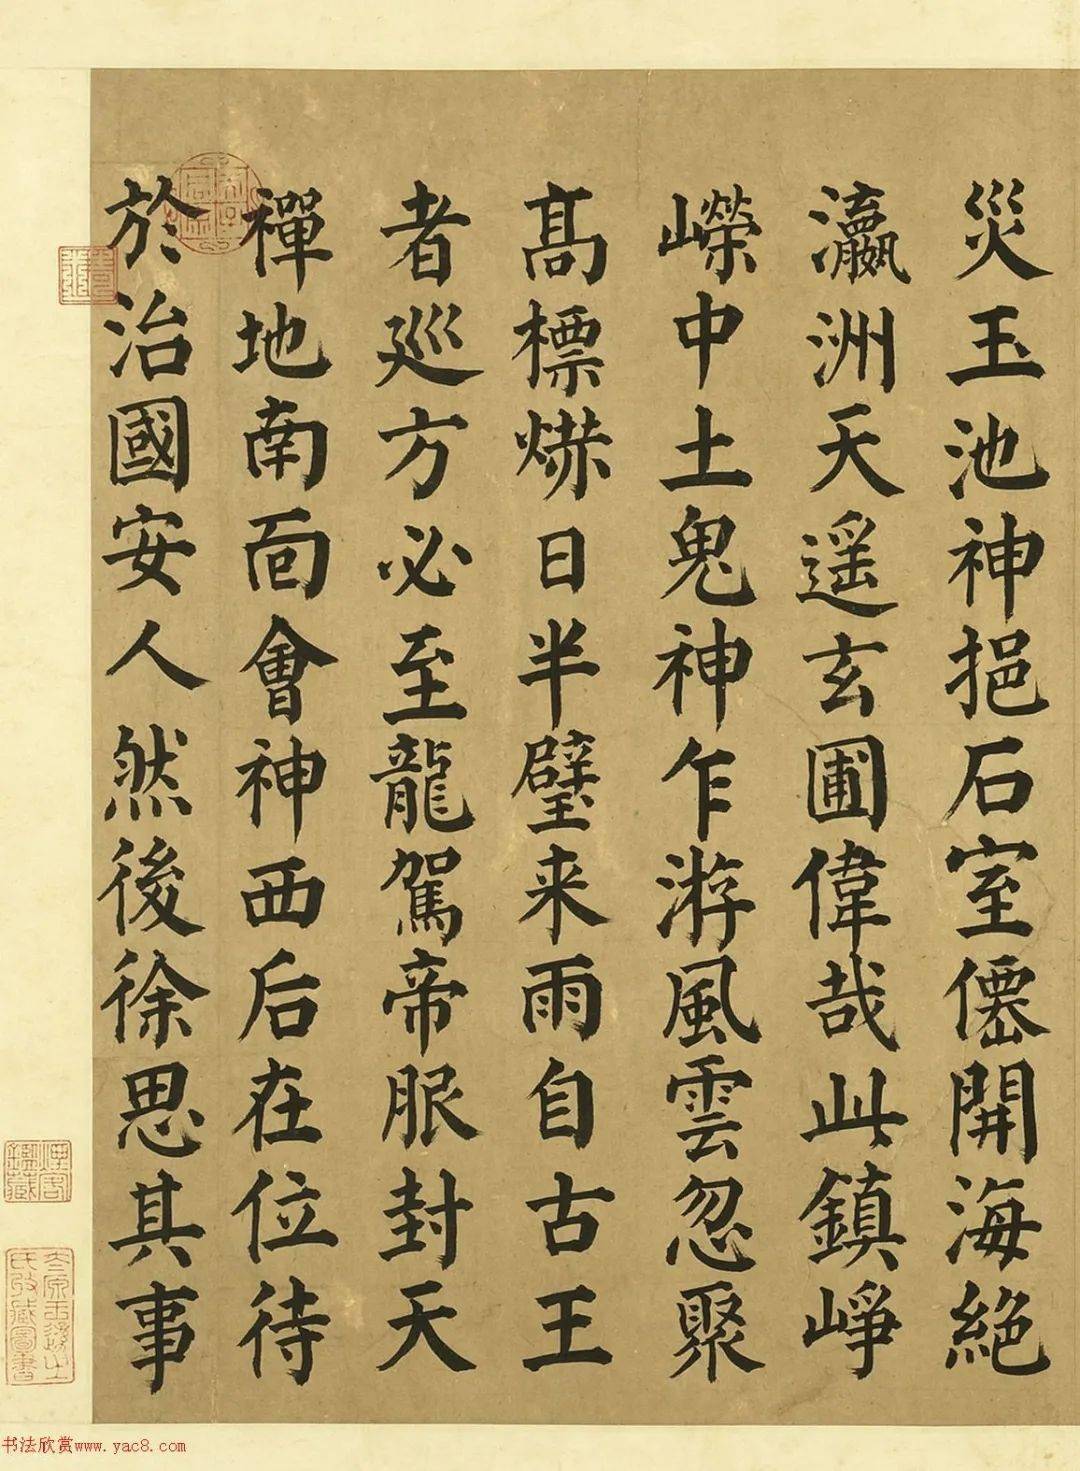 災玉池神挹石室僊開海絶
瀛洲天遥玄圃偉哉此鎮崢
嶸中土鬼神乍游風雲忽聚
髙標爀日半壁来雨自古王
者廵方必至龍駕帝服封天
禪地南面會神西后在位待
於治國安人然後徐思其事
書法欣赏www.yac8.com